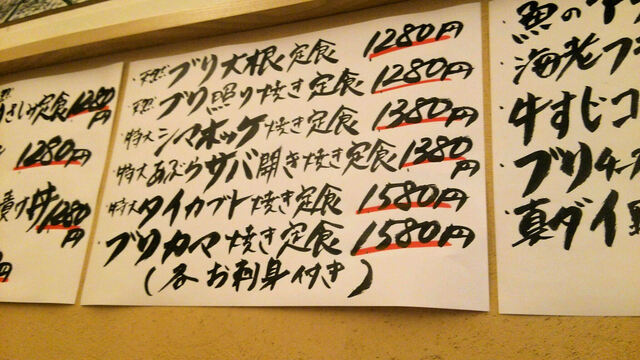 さしみ定食1280円
1280円
漬け丼1280円
円
・天然ブリ大根定食 1280円
・天然ブリ照り焼き定食 1280円
・特大シマホッケ焼き定食 1380円
・特大あぶらサバ開き焼き定食 1380円
・特大タイカブト焼き定食 1580円
・ブリカマ焼き定食 1580円
(各お刺身付き)
魚の
・海老フ
・牛すじコ
・ブリチーズ
・真ダイ